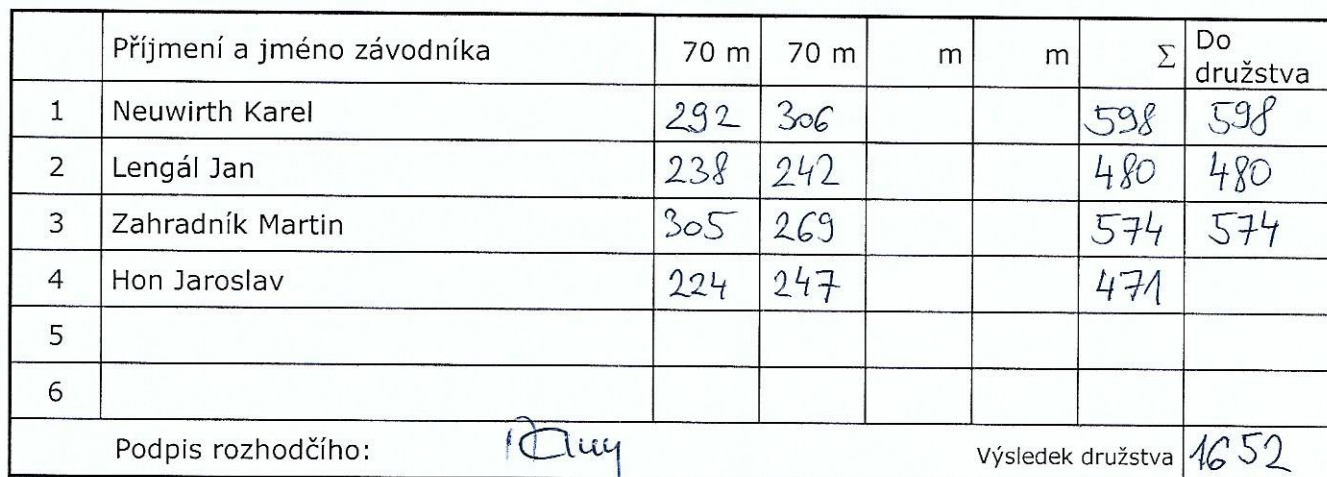 Příjmení a jméno závodníka 70 m 70 m m m Σ Do družstva
1 Neuwirth Karel 292 306 598 598
2 Lengál Jan 238 242 480 480
3 Zahradník Martin 305 269 574 574
4 Hon Jaroslav 224 247 471
5
6
Podpis rozhodčího: Výsledek družstva 1652